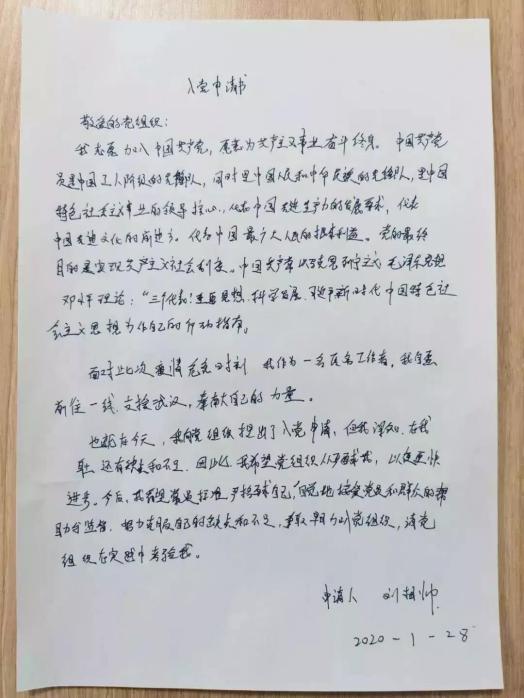 入党申请书
敬爱的党组织：
我志愿加入中国共产党，愿意为共产主义事业奋斗终身。中国共产党
是中国工人阶级的先锋队，同时是中国人民和中华民族的先锋队，是中国
特色社会主义事业的领导核心，代表中国先进生产力的发展要求，代表
中国先进文化的前进方，代表中国最广大人民的根本利益。党的最终
目的是实现共产主义社会制度。中国共产党以马克思列宁主义 毛泽东思想
邓小平理论："三个代表"重要思想、科学发展、习近平新时代中国特色社
会主义思想为作自己的行动指南。
面对此次疫情危急时刻 我作为一名医务工作者，我自愿
前往一线，支援武汉，奉献自己的力量。
也就在今天，我向党组织提出了入党申请，但我深知，在我
身上还有缺点和不足，因此，我希望党组织从严要求我，以便更快
进步。今后，我要用党员标准，严格要求自己，自觉地接受党员和群众的帮
助与监督，努力克服自己的缺点和不足，争取早日加入党组织，请党
组织在实践中考验我。
申请人 刘相帅
2020-1-28